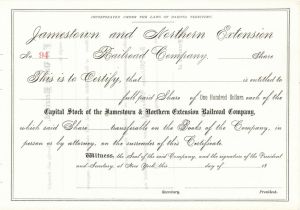 INCORPORATED UNDER THE LAWS OF DAKOTA TERRITORY.
Jamestown and Northern Extension
No. 94 Railroad Company, Share
This is to Certify, that is entitled to
full paid Share of One Hundred Dollars each of the
Capital Stock of the Jamestown & Northern Extension Railroad Company,
which said Share transferable on the Books of the Company, in
person or by attorney, on the surrender of this Certificate.
Witness, the Seal of the said Company, and the signatures of the President
and Secretary, at New York, this day of 18
Secretary. President.